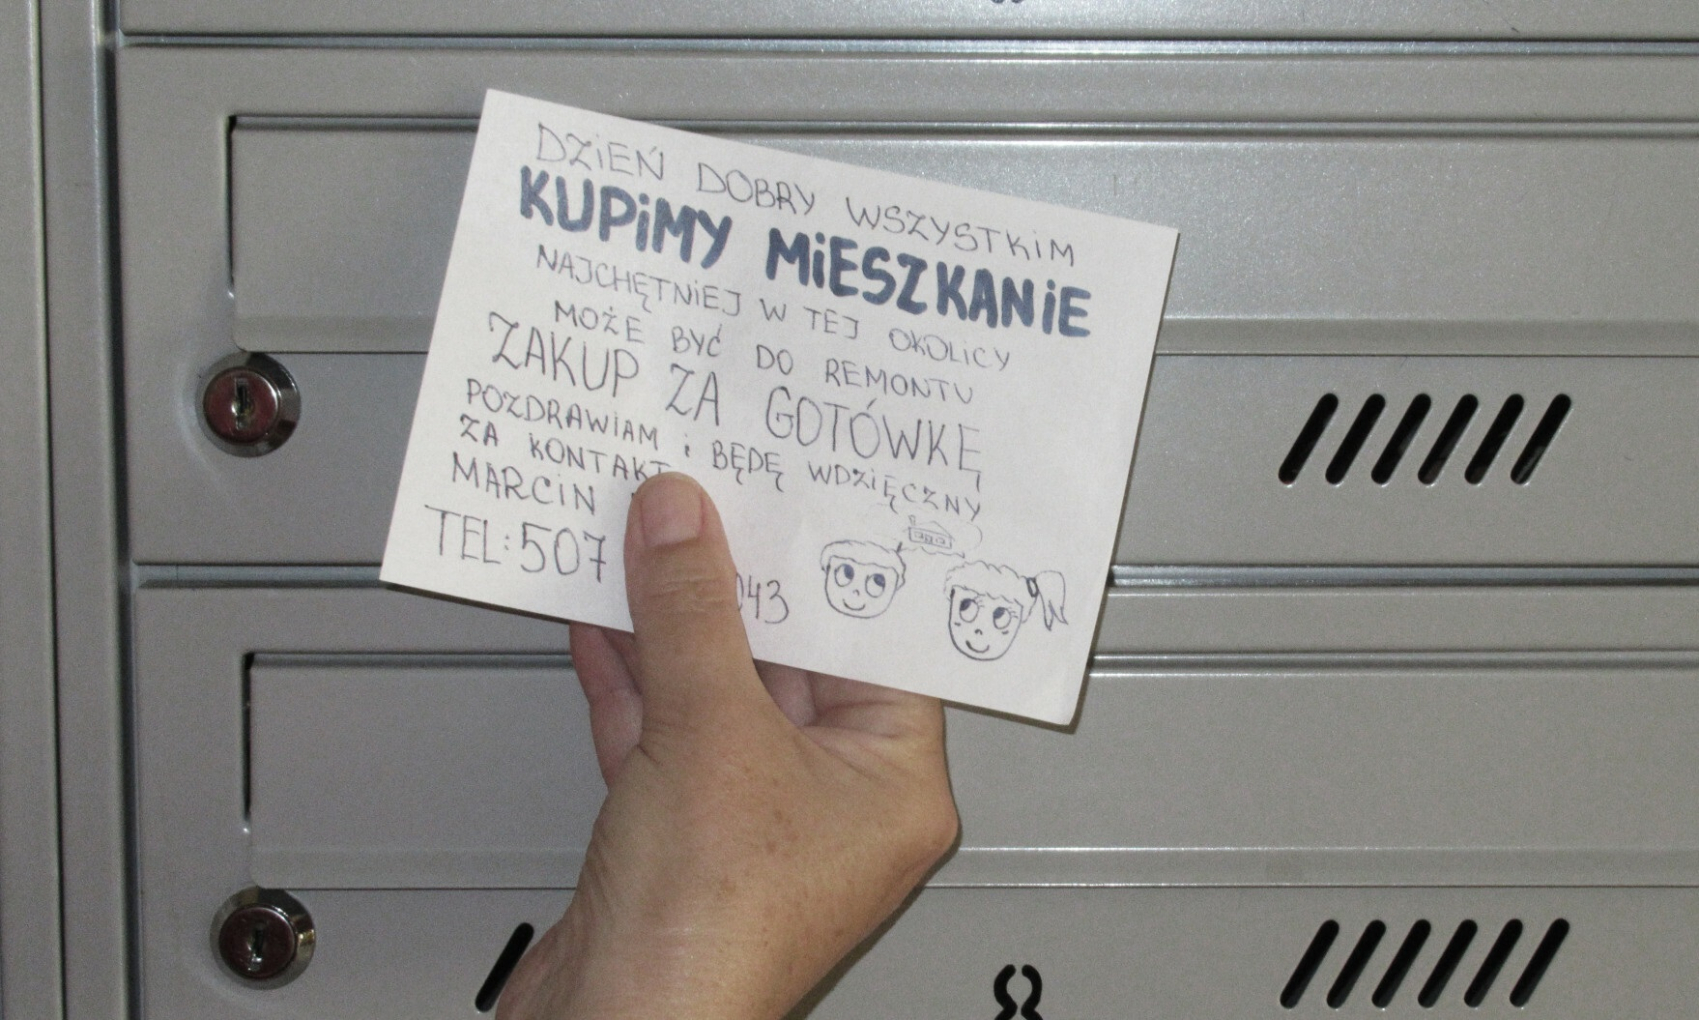 DZiEŃ DOBRY WSZYSTKiM
KUPiMY MiESZKANiE
NAJCHĘTNiEJ W TEJ OKOLiCY
MOŻE BYĆ DO REMONTU
ZAKUP ZA GOTÓWKĘ
POZDRAWiAM i BĘDĘ WDZiĘCZNY
ZA KONTAKT
MARCiN
TEL: 507 043